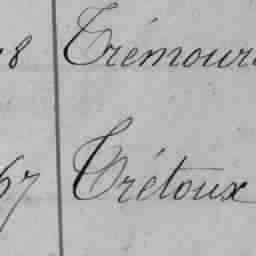 8 Trémour
67 Trétoux